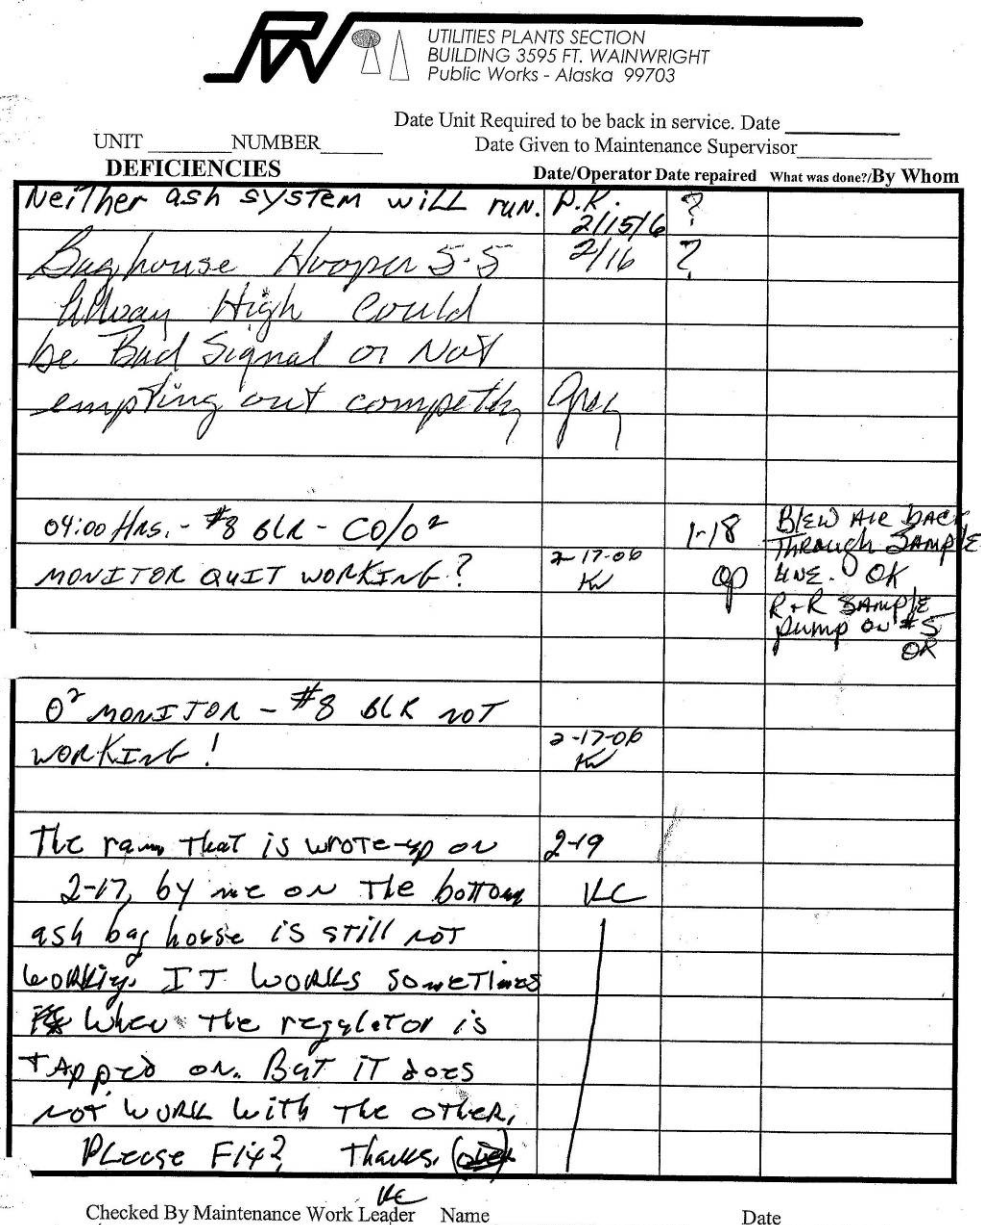 PW
UTILITIES PLANTS SECTION
BUILDING 3595 FT. WAINWRIGHT
Public Works - Alaska 99703
Date Unit Required to be back in service. Date
UNIT NUMBER
Date Given to Maintenance Supervisor
DEFICIENCIES Date/Operator Date repaired What was done?/By Whom
Neither ash system will run. P.K. ?
2/15/6
Baghouse Hooper 5-5 2/16 ?
Alway High Could
be Bad Signal or Not
empting out competly Greg
04:00 HRS. - #8 BLR - CO/O² 1-18 Blew Air back
Through Sample
MONITOR QUIT WORKING? 2-17-06 KW OP LINE. OK
R+R SAMPLE
pump on #5
OR
O² MONITOR - #8 BLR NOT
WORKING! 2-17-06
KW
The ram That is wrote-up on 2-19
2-17, by me on The bottom KC
ash bag house is still not
working. IT works sometimes
When the regulator is
TApped on. But iT does
not work with the other,
Please Fix? Thanks.
KC
Checked By Maintenance Work Leader Name Date